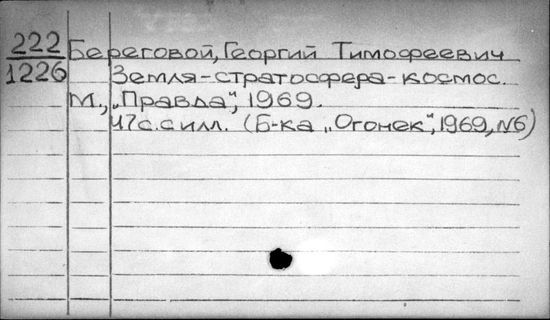 222 Береговой, Георгий Тимофеевич
1226 Земля-стратосфера-космос.
М., „Правда“, 1969.
47с. с илл. (Б-ка „Огонек“, 1969, №6)